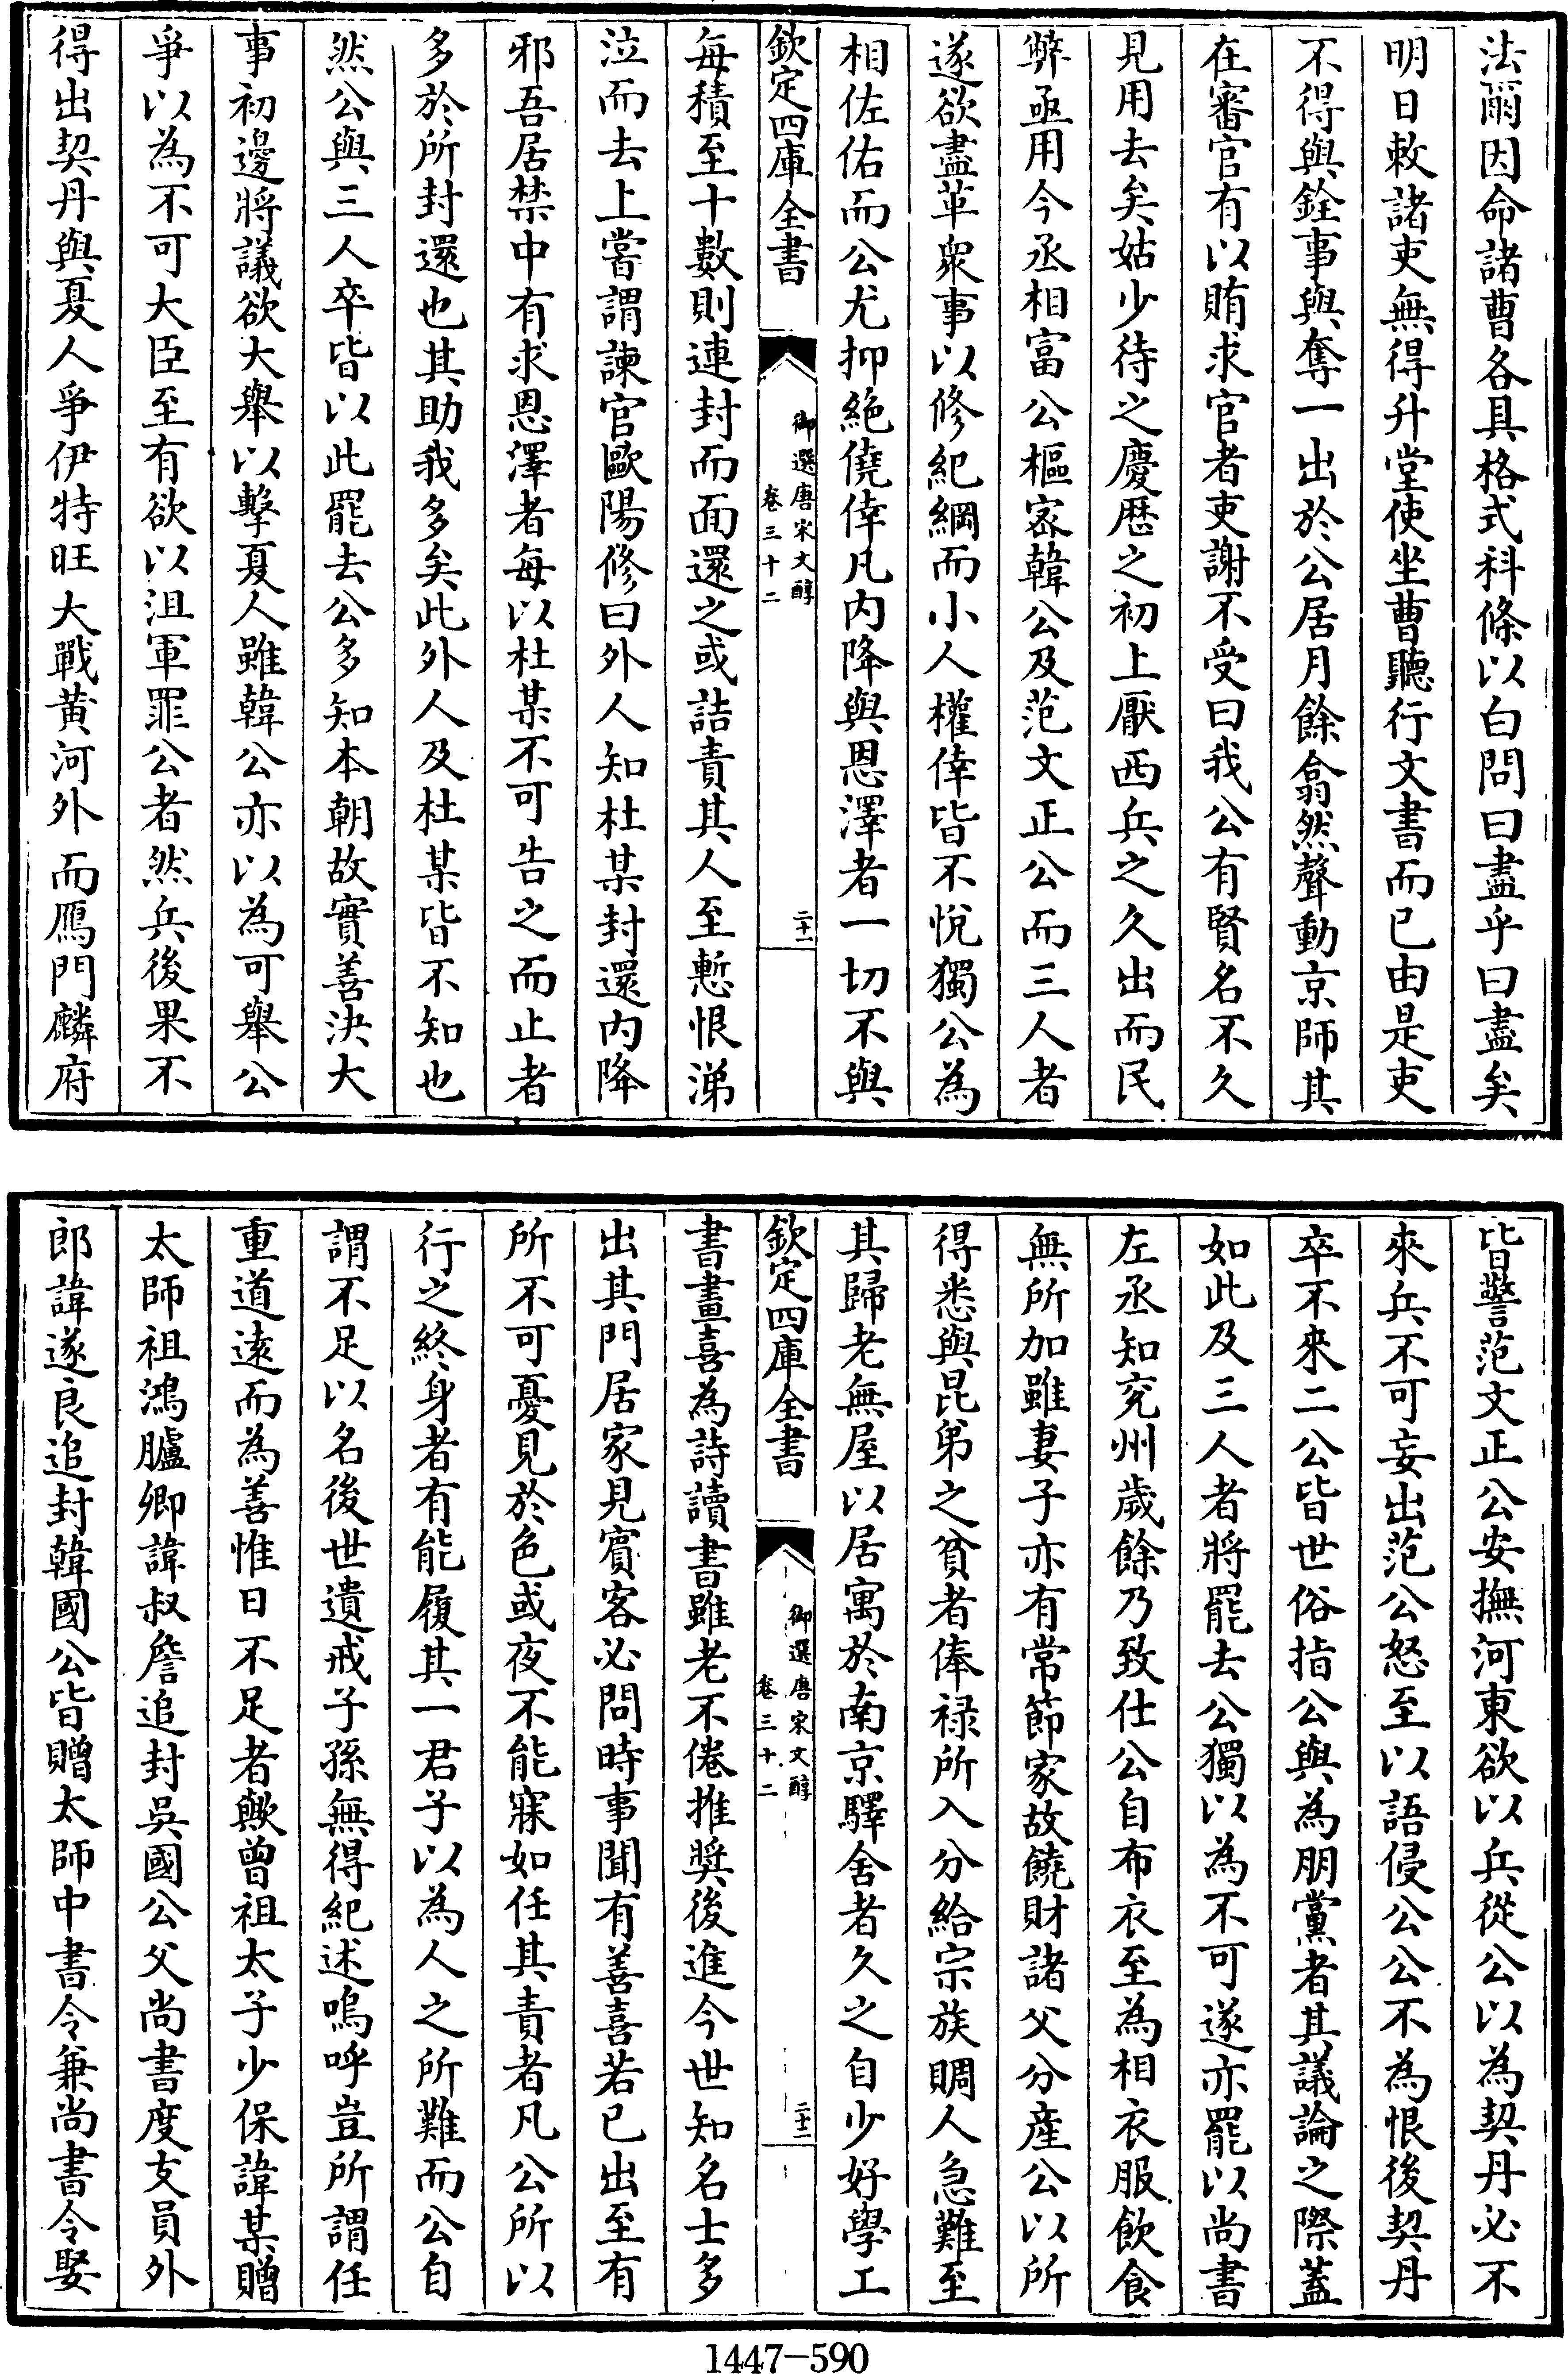 法爾因命諸曹各具格式科條以白問曰盡乎曰盡矣
明日敕諸吏無得升堂使坐曹聽行文書而已由是吏
不得與銓事與奪一出於公居月餘翕然聲動京師其
在審官有以賄求官者吏謝不受曰我公有賢名不久
見用去矣姑少待之慶歴之初上厭西兵之久出而民
弊亟用今丞相富公樞宻韓公及范文正公而三人者
遂欲盡革衆事以修紀綱而小人權倖皆不悅獨公為
相佐佑而公尤抑絶僥倖凡内降與恩澤者一切不與
欽定四庫全書
御選唐宋文醇
卷三十二
二十一
每積至十數則連封而面還之或詰責其人至慙恨涕
泣而去上嘗謂諫官歐陽修曰外人知杜某封還内降
邪吾居禁中有求恩澤者每以杜某不可告之而止者
多於所封還也其助我多矣此外人及杜某皆不知也
然公與三人卒皆以此罷去公多知本朝故實善決大
事初邊將議欲大舉以擊夏人雖韓公亦以為可舉公
爭以為不可大臣至有欲以沮軍罪公者然兵後果不
得出契丹與夏人爭伊特旺大戰黄河外而鴈門麟府
皆警范文正公安撫河東欲以兵從公以為契丹必不
來兵不可妄出范公怒至以語侵公公不為恨後契丹
卒不來二公皆世俗指公與為朋黨者其議論之際蓋
如此及三人者將罷去公獨以為不可遂亦罷以尚書
左丞知兖州歲餘乃致仕公自布衣至為相衣服飲食
無所加雖妻子亦有常節家故饒財諸父分産公以所
得悉與昆弟之貧者俸禄所入分給宗族賙人急難至
其歸老無屋以居寓於南京驛舍者久之自少好學工
欽定四庫全書
御選唐宋文醇
卷三十二
二十二
書畫喜為詩讀書雖老不倦推奬後進今世知名士多
出其門居家見賓客必問時事聞有善喜若已出至有
所不可憂見於色或夜不能寐如任其責者凡公所以
行之終身者有能履其一君子以為人之所難而公自
謂不足以名後世遺戒子孫無得紀述嗚呼豈所謂任
重道逺而為善惟日不足者歟曾祖太子少保諱某贈
太師祖鴻臚卿諱叔詹追封吳國公父尚書度支員外
郎諱遂良追封韓國公皆贈太師中書令兼尚書令娶
1447-590